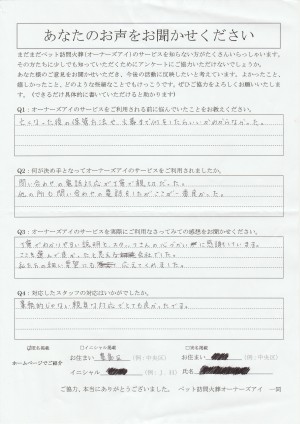 あなたのお声をお聞かせください
まだまだペット訪問火葬(オーナーズアイ)のサービスを知らない方がたくさんいらっしゃいます。
その方たちに少しでも知っていただくためにアンケートにご協力いただけないでしょうか。
あなた様のご意見をお聞かせいただき、今後の活動に反映したいと考えています。よかったこと、
嬉しかったこと、どのような些細なことでもけっこうです。ぜひご協力をよろしくお願いいたします。(できるだけ具体的に書いていただけると助かります)
Q1:オーナーズアイのサービスをご利用される前に悩んでいたことをお教えください。
亡くなった後の保管方法や、火葬まで何をしたらいいかわからなかった。
Q2:何が決め手となってオーナーズアイのサービスをご利用されましたか。
問い合わせの電話対応が丁寧で親切だった。
他の所も問い合わせの電話をしたがここが一番良かった。
Q3:オーナーズアイのサービスを実際にご利用なさってみての感想をお聞かせください。
丁寧でわかりやすい説明と、スタッフさんの心づかいに感謝しています。
ここを選んで良かったと思える会社でした。
私たちの細い要望にも 応えてくれました。
Q4:対応したスタッフの対応はいかがでしたか。
事務的じゃない親身な対応でとても良かったです。
ホームページでご紹介
☑匿名掲載
□イニシャル掲載
□実名掲載
お住まい
(例:中央区)
イニシャル
(例:J. H)
お住まい
(例:中央区)
氏名
ご協力、本当にありがとうございました。 ペット訪問火葬オーナーズアイ 一同